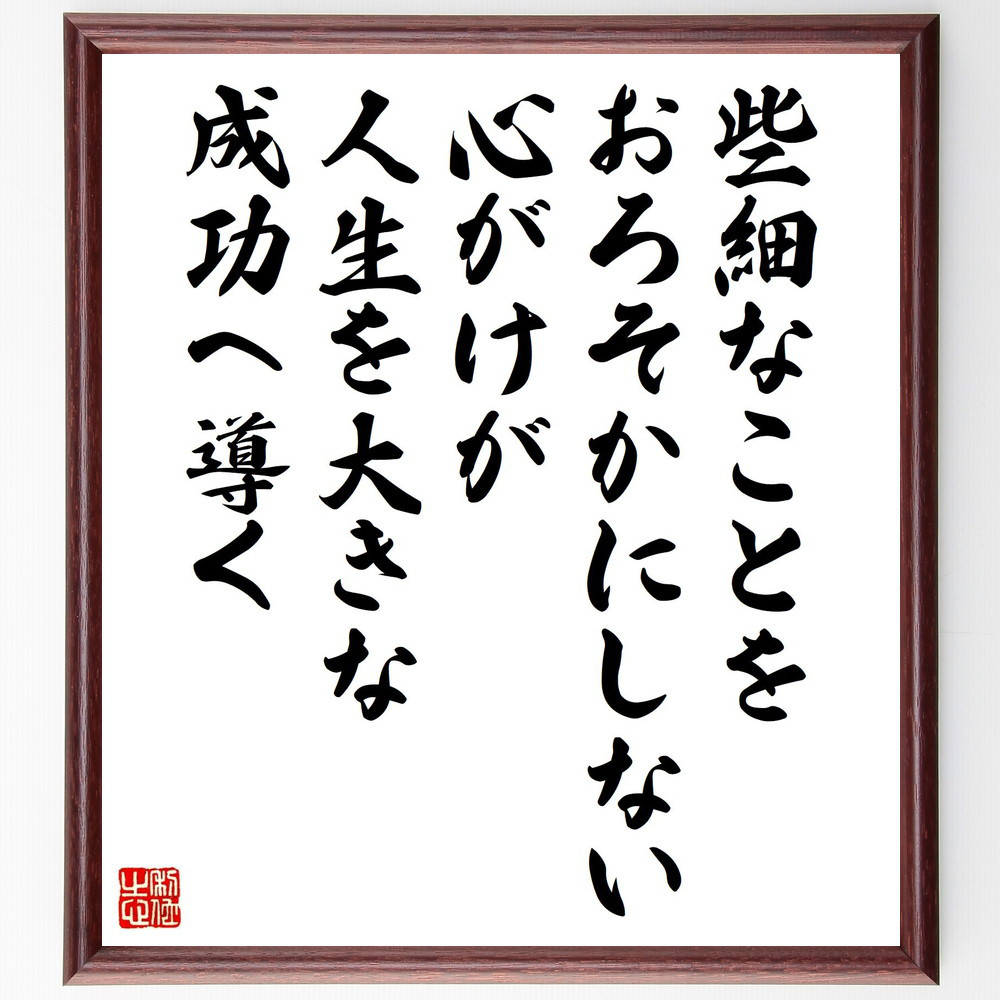 些細なことを
おろそかにしない
心がけが
人生を大きな
成功へ導く